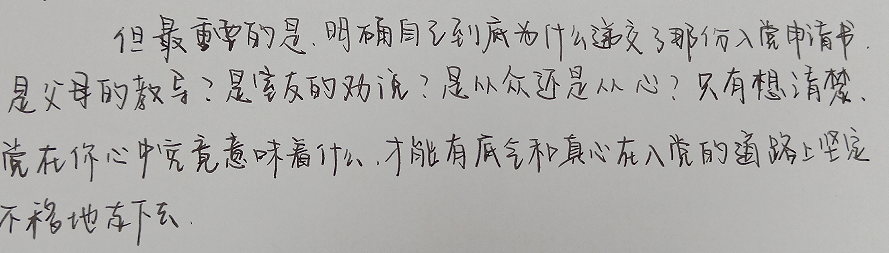 但最重要的是,明确自己到底为什么递交了那份入党申请书.
是父母的教导?是室友的劝说?是从众还是从心?只有想清楚、
党在你心中究竟意味着什么,才能有底气和真心在入党的道路上坚定
不移地走下去.